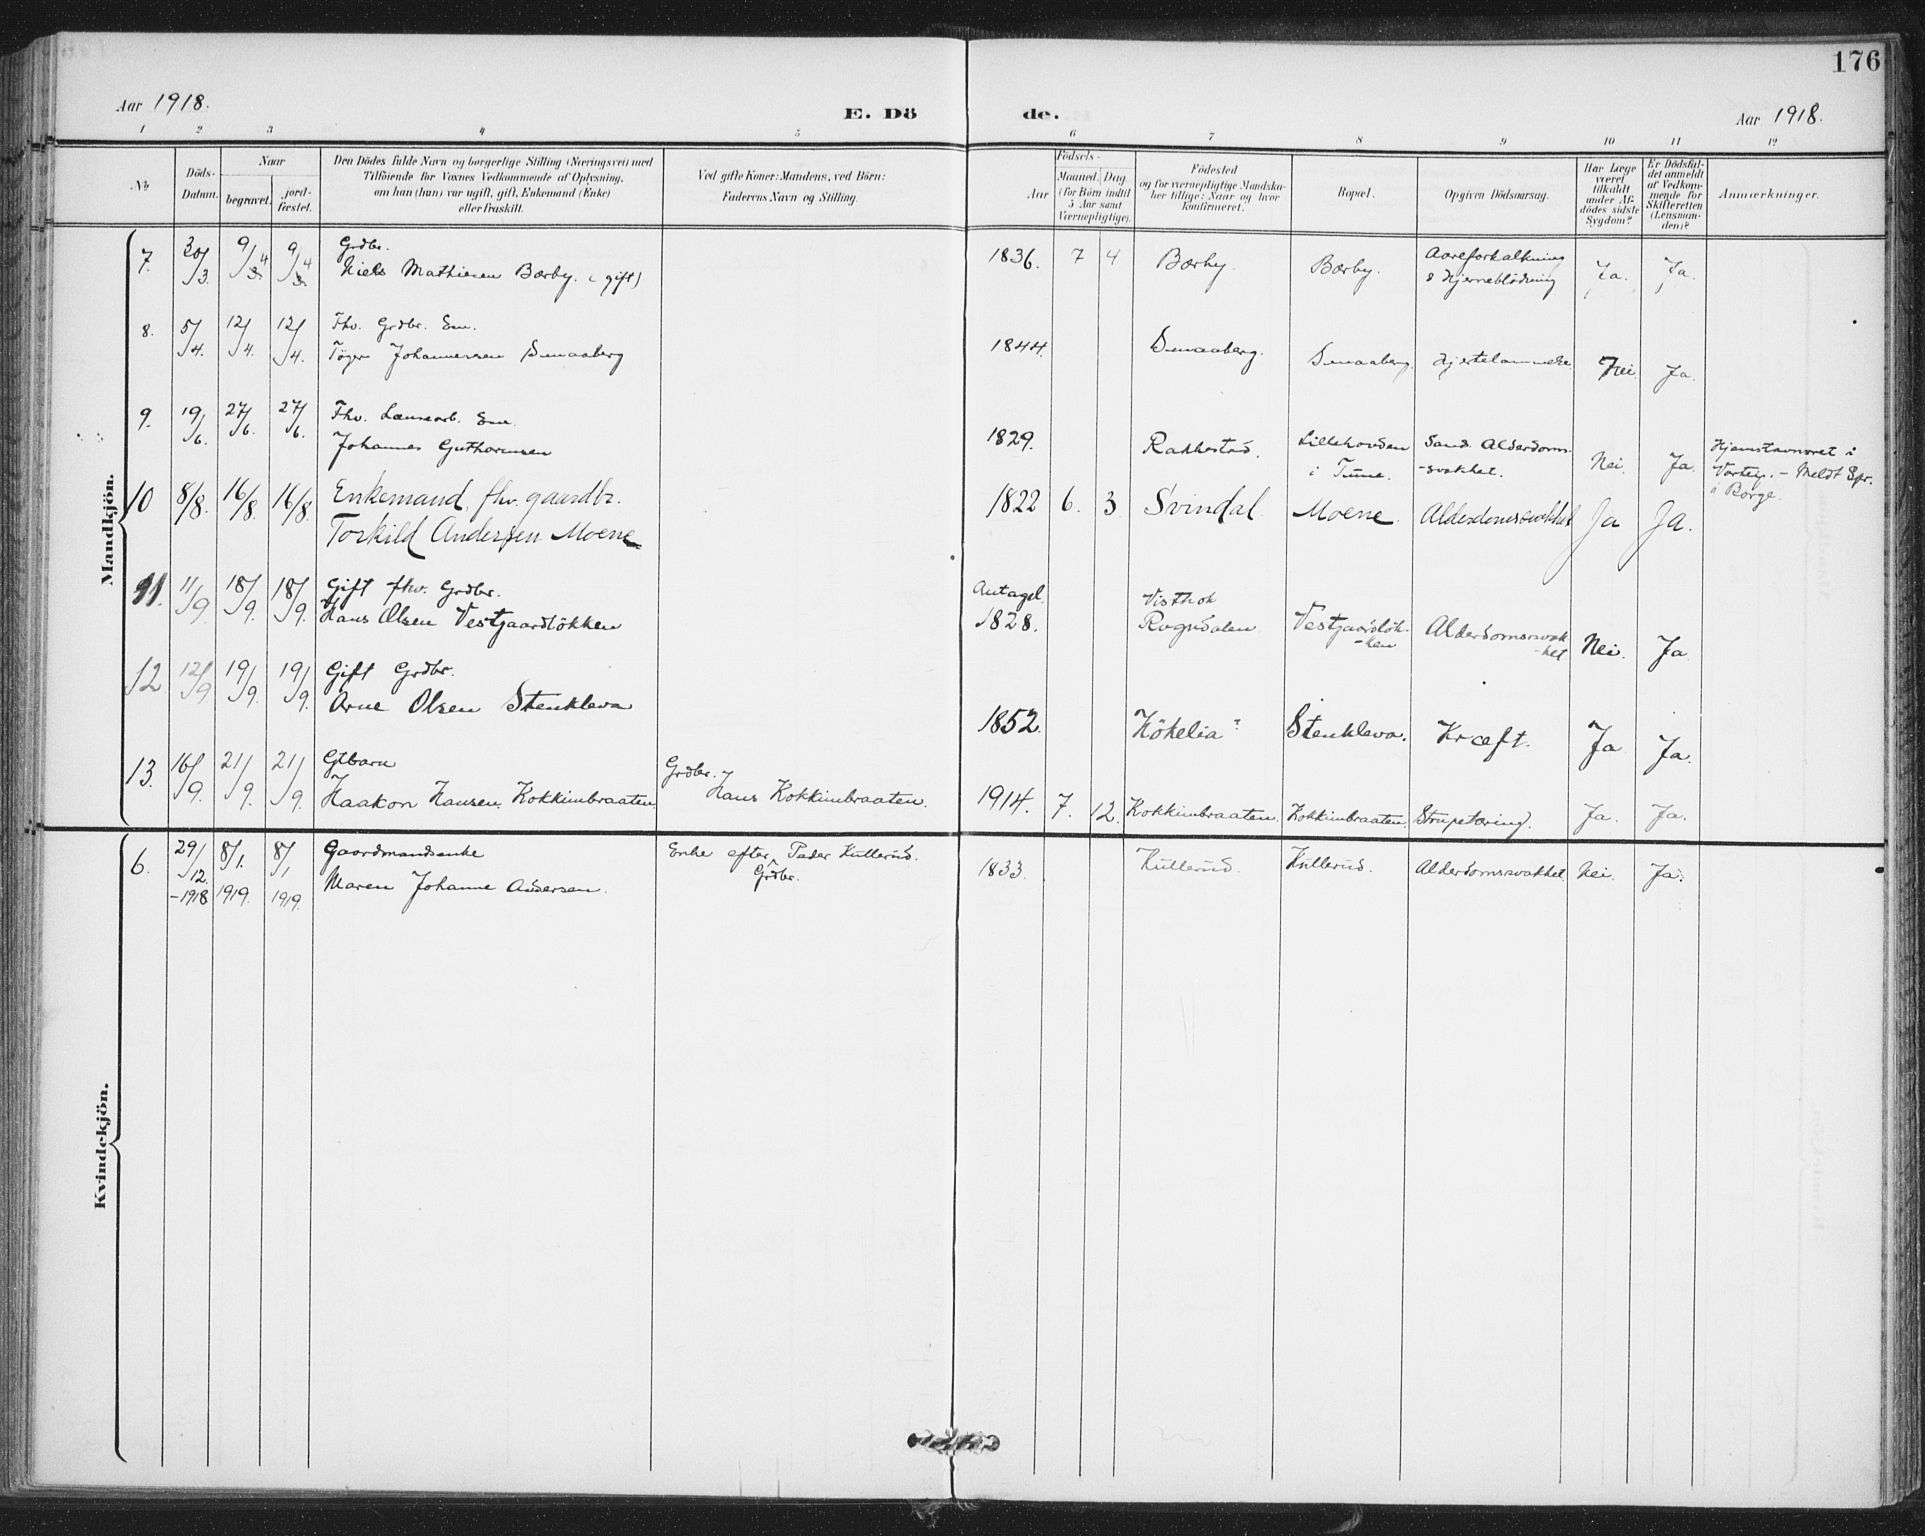 176
Aar 1918.
E. Dö de.
Aar 1918.
1 2 3 4 5 6 7 8 9 10 11 12
No
Döds-Datum.
Naar
begravet.
jord-fæstet.
Den Dödes fulde Navn og borgerlige Stilling (Næringsvei) med
Tilföiende for Voxnes Vedkommende af Oplysning,
om han (hun) var ugift, gift, Enkemand (Enke)
eller fraskilt.
Ved gifte Koner: Mandens, ved Börn:
Faderens Navn og Stilling.
Födsels-
Aar
Maaned. Dag
(for Börn indtil
5 Aar samt
Værnepligtige).
Födested
og for værnepligtige Mandska-
ber tillige: Naar og hvor
konfirmeret.
Bopæl.
Opgiven Dödsaarsag.
Har Læge
været
tilkaldt
under Af-
dödes sidste
Sygdom?
Er Dödsfal-
det anmeldt
af Vedkom-
mende for
Skifteretten
(Lensman-
den)?
Anmærkninger.
Mandkjön.
7. 30/3. 9/4 9/4 Grdbr.
Niels Mathiesen Bærby. (gift) 1836. 7 4 Bærby. Bærby. Aareforkalkning
& Hjerneblödning Ja. Ja.
8. 5/4. 12/4. 12/4. Fhv. Grdbr. Em.
Töger Johannessen Smaaberg 1844. Smaaberg. Smaaberg. Hjertelammelse. Nei. Ja.
9. 19/6. 27/6. 27/6. Fhv. Lænsearb. Em.
Johannes Guthormsen 1829. Rakkestad. Lillehovden
i Tune. Sand. Alderdoms-
-svakhet. Nei. Ja. Hjemstavnsret i
Varteig. – Meldt Spr.
i Borge.
10 8/8. 16/8. 16/8. Enkemand, fhv. gaardbr.
Torkild Andersen Moene 1822 6. 3. Svindal. Moene. Alderdomssvakhet Ja Ja.
11. 11/9 18/9. 18/9. Gift fhv. Grdbr.
Hans Olsen Vestgaardlökken Antagel.
1828. Visthok
Rogndalen. Vestgaardlök-
-ken Alderdomssvak-
-het Nei. Ja.
12 12/9 19/9. 19/9. Gift Grdbr.
Arne Olsen Stenkleva 1852. Kökelia? Stenkleva. Kræft. Ja Ja.
13. 16/9. 21/9. 21/9. Gtbarn
Haakon Hansen Kokkimbraaten Grdbr.
Hans Kokkimbraaten. 1914. 7. 12. Kokkimbraaten. Kokkimbraaten. Strupetæring. Ja. Ja.
Kvindekjön.
6. 29/12. 8/1. 8/1 Gaardmandsenke Enke efter Peder Kullerud.
Grdbr. 1833. Kullerud. Kullerud. Alderdomssvakhet. Nei. Ja.
-1918 1919. 1919. Maren Johanne Andersen.